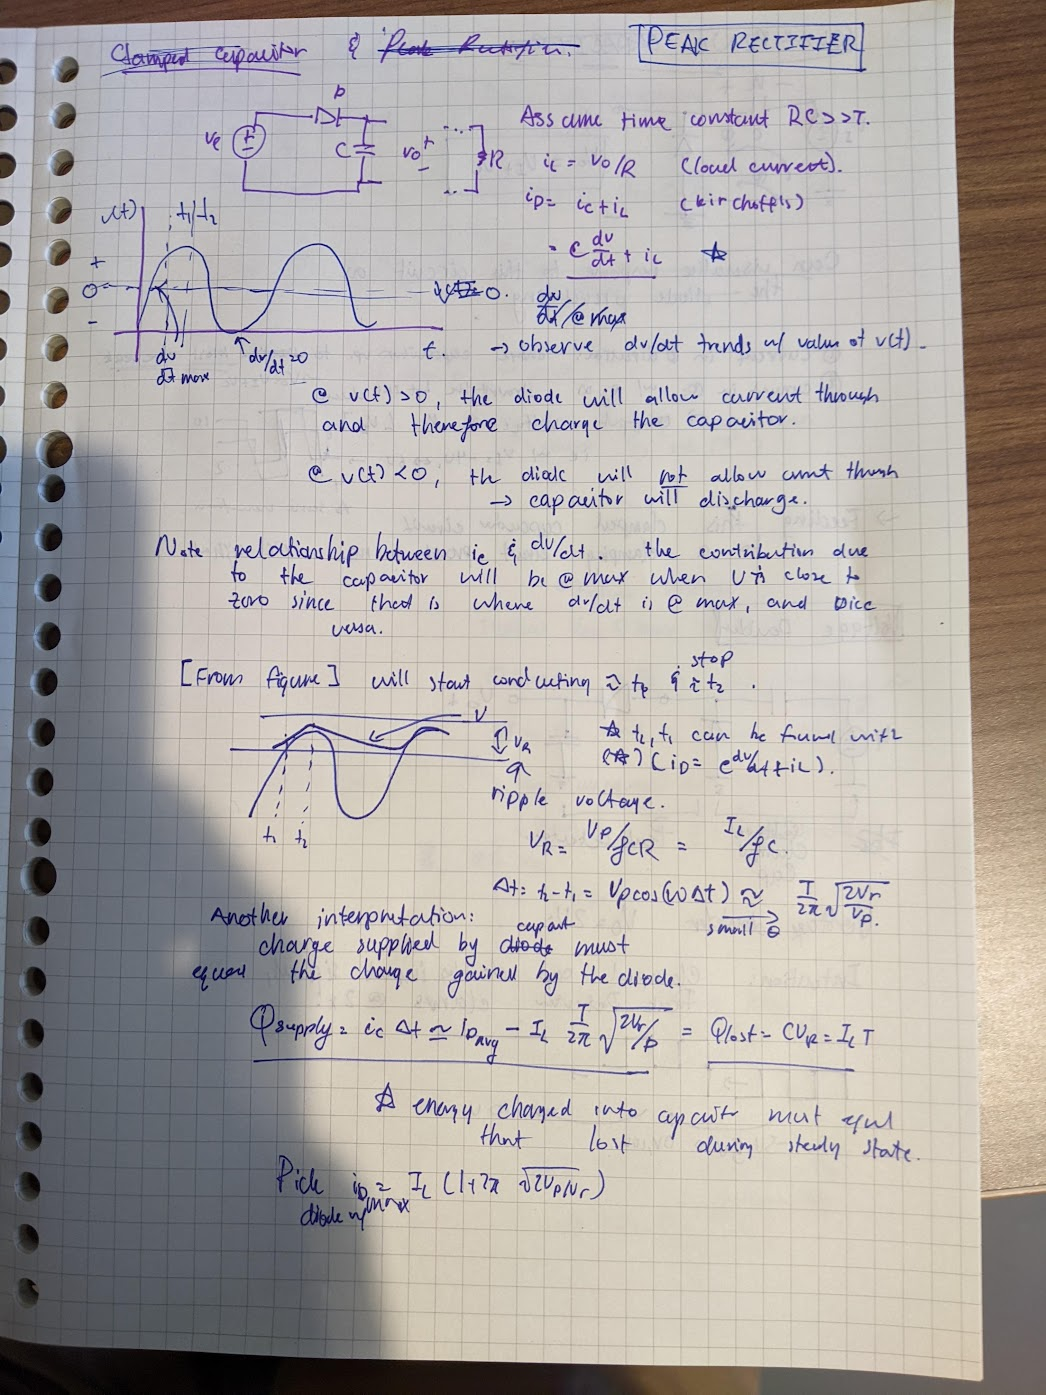 Clamped Capacitor & Peak Rectifier.
PEAK RECTIFIER
D
C
vo
+
-
R
Assume time constant RC>>T.
iL = vo/R (load current).
iD = ic+iL (kirchoffs)
= C dv/dt + iL ☆
v(t)
t1 t2
+
0
-
0.
t.
dv/dt max
dv/dt=0
dv/dt/@max
→ observe dv/dt trends w/ value of v(t).
@ v(t)>0, the diode will allow current through
and therefore charge the capacitor.
@ v(t)<0, the diode will not allow curnt through
→ capacitor will discharge.
Note relationship between ic & dv/dt. the contribution due
to the capacitor will be @ max when V is close to
zero since that is where dv/dt is @ max, and vice
versa.
[From figure] will start conducting ≈ t1 & stop ≈ t2.
V
VR
ripple voltage.
t1
t2
☆ t2, t1 can be found with
(☆) (iD = C dv/dt + iL).
VR = VP/fCR = IL/fC.
Δt = t2-t1 = Vpcos(ωΔt) ≈ T/2π √2Vr/Vp.
small θ
Another interpretation:
charge supplied by diode must
equal the charge gained by the diode.
Qsupply = ic Δt ≃ iDavg - IL T/2π √2Vr/p = Qlost = CVR = IL T
☆ energy charged into capacitor must equal
that lost during steady state.
Pick iDmax = IL (1+2π √2Vp/Vr)
diode w/